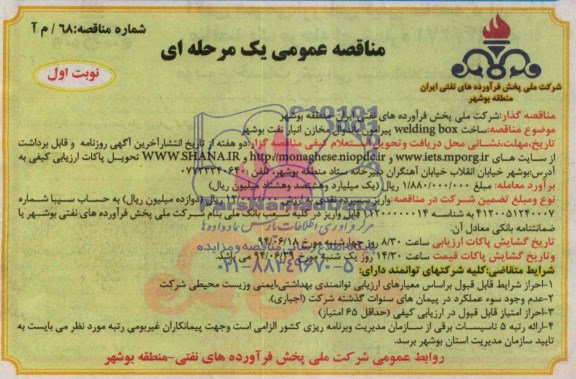 شماره مناقصه:۶۸/ م آ
مناقصه عمومی یک مرحله ای
نوبت اول
شرکت ملی پخش فرآورده های نفتی ایران
منطقه بوشهر
مناقصه گذار:شرکت ملی پخش فرآورده های نفتی ایران-منطقه بوشهر
موضوع مناقصه:ساخت welding box پیرامون پانتوال مخازن انبار نفت بوشهر
تاریخ،مهلت،نشانی محل دریافت وتحویل استعلام کیفی مناقصه گزار:دو هفته از تاریخ انتشارآخرین آگهی روزنامه و قابل برداشت
از سایت های www.iets.mporg.ir و http://monaghese.niopdc.ir و WWW.SHANA.IR تحویل پاکات ارزیابی کیفی به
آدرس:بوشهر خیابان انقلاب خیابان آهنگران دبیرخانه ستاد منطقه بوشهر، تلفن
برآورد معامله: مبلغ ۱/۸۸۰/۰۰۰/۰۰۰ ریال (یک میلیارد وهشتصد وهشتاد میلیون ریال)
نوع ومبلغ تضمین شرکت در مناقصه:واریز سپرده نقدی ریال (دوازده میلیون ریال) به حساب سیبا شماره
۴۱۲۰۰۵۱۲۴۰۰۰۷ به شناسه قابل واریز در کلیه شعب بانک ملی بنام شرکت ملی پخش فرآورده های نفتی بوشهر یا
ضمانتنامه بانکی معادل آن.
تاریخ گشایش پاکات ارزیابی ساعت ۸/۳۰ روز چهارشنبه مورخ ۹۴/۰۶/۱۸
وتاریخ گشایش پاکات قیمت ساعت ۱۴/۳۰ روز یک شنبه مورخ ۹۴/۰۶/۲۹ می باشد.
شرایط متقاضی:کلیه شرکتهای توانمند دارای:
۱-احراز شرایط قابل قبول براساس معیارهای ارزیابی توانمندی بهداشتی،ایمنی وزیست محیطی شرکت
۲-عدم وجود سوء عملکرد در پیمان های سنوات گذشته شرکت (اجباری).
۳-احراز امتیاز قابل قبول در ارزیابی کیفی (حداقل ۶۵ امتیاز)
۴-ارائه رتبه ۵ تاسیسات برقی از سازمان مدیریت وبرنامه ریزی کشور الزامی است وجهت پیمانکاران غیربومی رتبه مورد نظر می بایست به
تایید سازمان مدیریت استان بوشهر برسد.
روابط عمومی شرکت ملی پخش فرآورده های نفتی-منطقه بوشهر
ParsNamadData
پایگاه اطلاع رسانی مناقصه و مزایده
۰۲۱-۸۸۳۴۹۶۷۰-۵